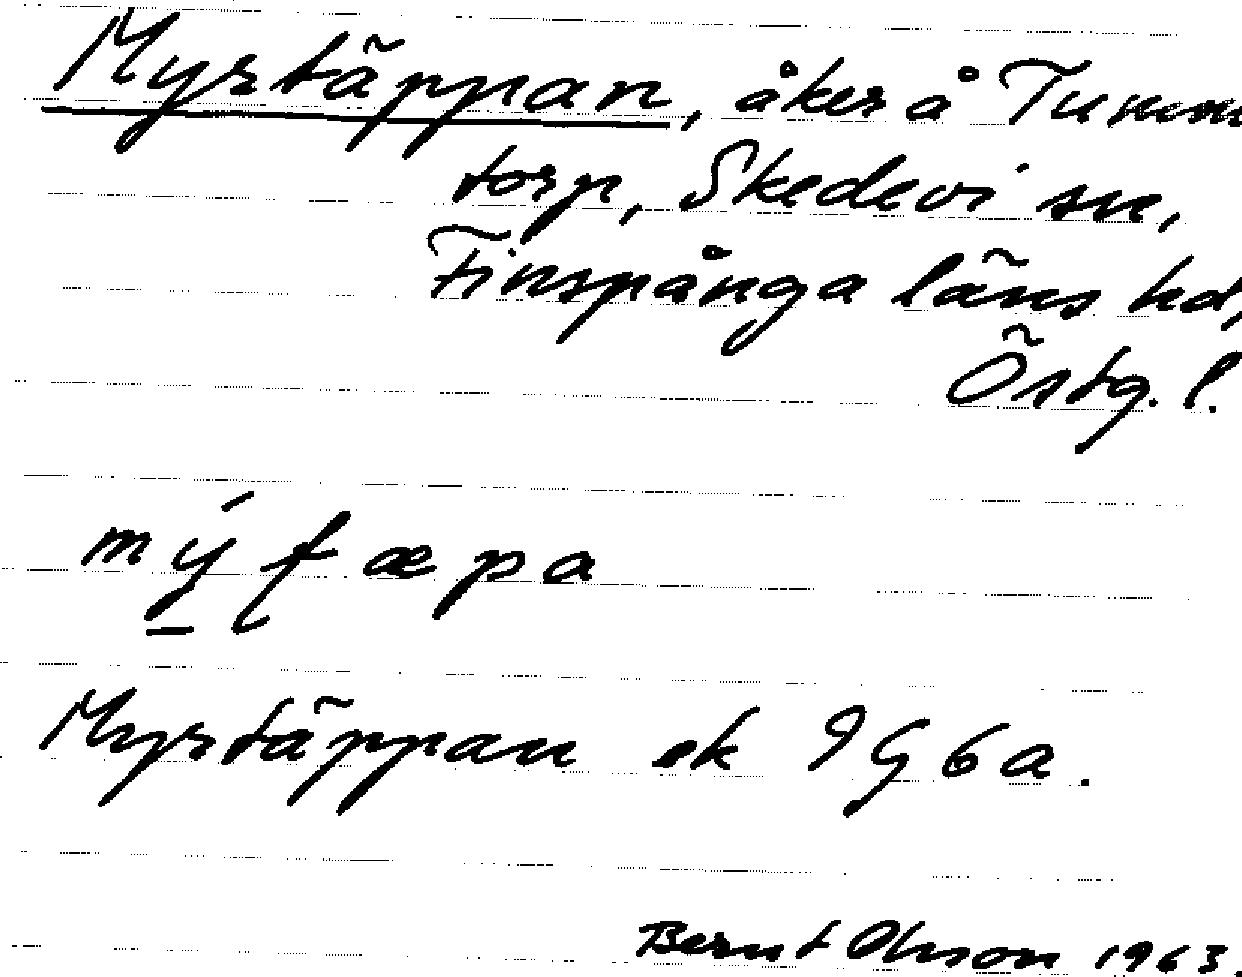 Myrstäppan, åker å Tumm
torp, Skedevi sn,
Finspånga läns hd,
Östg. l.
mýʃæpa
Myrstäppan ek 9G6a.
Bernt Olsson 1963.